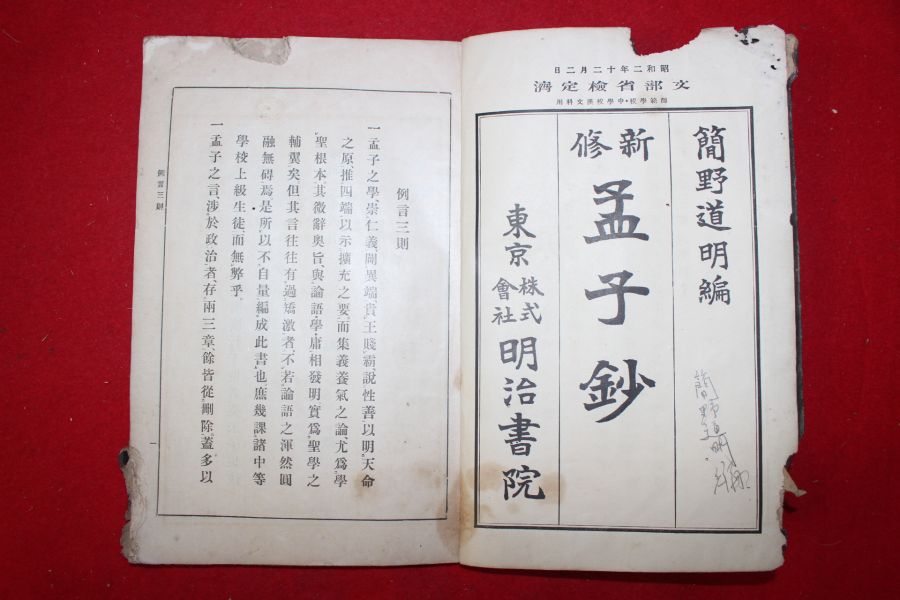 昭和二年十二月二日
文部省檢定濟
師範學校・中學校漢文科用
簡野道明編
新修
孟子鈔
東京
株式會社
明治書院
簡野道明
例言三則
一孟子之學、崇仁義、闢異端、貴王賤霸、說性善、以明天命
之原、推四端以示擴充之要、而集義養氣之論、尤爲學
聖根本、其微辭奧旨、與論語學庸相發明、實爲聖學之
輔翼矣、但其言往往有過矯激者、不若論語之渾然圓
融無碍焉、是所以不自量編成此書也、庶幾課諸中等
學校上級生徒、而無弊乎。
一孟子之言、涉於政治者、存兩三章、餘皆從刪除、蓋多以
例言三則
一